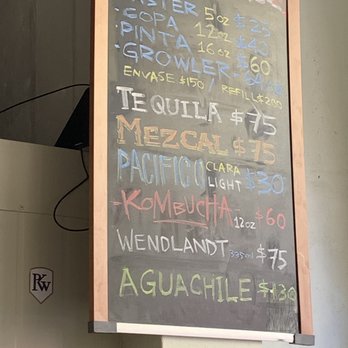 5oz $25
-COPA 12oz $40
-PINTA 16oz $60
-GROWLER
ENVASE $150 / REFILL $200
TEQUILA $75
MEZCAL $75
PACIFICO CLARA LIGHT $30
-KOMBUCHA 12oz $60
WENDLANDT $75
AGUACHILE $130
RW